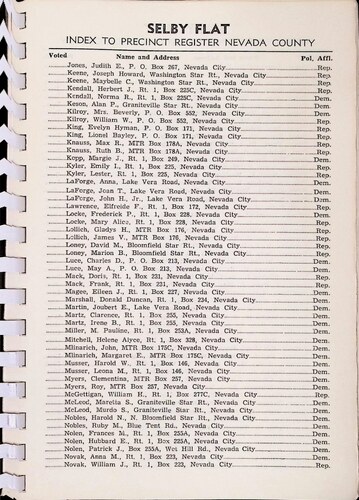 SELBY FLAT
INDEX TO PRECINCT REGISTER NEVADA COUNTY
Voted Name and Address Pol. Affl.
Jones, Judith E., P. O. Box 267, Nevada City Rep.
Keene, Joseph Howard, Washington Star Rt., Nevada City Rep.
Keene, Maybelle C., Washington Star Rt., Nevada City Rep.
Kendall, Herbert J., Rt. 1, Box 225C, Nevada City Rep.
Kendall, Norma R., Rt. 1, Box 225C, Nevada City Dem.
Keson, Alan P., Graniteville Star Rt., Nevada City Dem.
Kilroy, Mrs. Beverly, P. O. Box 552, Nevada City Dem.
Kilroy, William W., P. O. Box 552, Nevada City Rep.
King, Evelyn Hyman, P. O. Box 171, Nevada City Rep.
King, Lionel Bayley, P. O. Box 171, Nevada City Rep.
Knauss, Max R., MTR Box 178A, Nevada City Rep.
Knauss, Ruth B., MTR Box 178A, Nevada City Rep.
Kopp, Margie J., Rt. 1, Box 249, Nevada City Dem.
Kyler, Emily I., Rt. 1, Box 225, Nevada City Rep.
Kyler, Lester, Rt. 1, Box 225, Nevada City Rep.
LaForge, Anna, Lake Vera Road, Nevada City Dem.
LaForge, Joan T., Lake Vera Road, Nevada City Dem.
LaForge, John H., Jr., Lake Vera Road, Nevada City Dem.
Lawrence, Elfreide F., Rt. 1, Box 172, Nevada City Rep.
Locke, Frederick P., Rt. 1, Box 228, Nevada City Dem.
Locke, Mary Alice, Rt. 1, Box 228, Nevada City Dem.
Lollich, Gladys H., MTR Box 176, Nevada City Rep.
Lollich, James V., MTR Box 176, Nevada City Rep.
Loney, David M., Bloomfield Star Rt., Nevada City Rep.
Loney, Marion B., Bloomfield Star Rt., Nevada City Rep.
Luce, Charles D., P. O. Box 213, Nevada City Dem.
Luce, May A., P. O. Box 213, Nevada City Dem.
Mack, Doris, Rt. 1, Box 231, Nevada City Rep.
Mack, Frank, Rt. 1, Box 231, Nevada City Rep.
Magee, Eileen J., Rt. 1, Box 237, Nevada City Dem.
Marshall, Donald Duncan, Rt. 1, Box 234, Nevada City Dem.
Martin, Joubert E., Lake Vera Road, Nevada City Dem.
Martz, Clarence, Rt. 1, Box 255, Nevada City Dem.
Martz, Irene B., Rt. 1, Box 255, Nevada City Dem.
Miller, M. Pauline, Rt. 1, Box 253A, Nevada City Dem.
Mitchell, Helene Alyce, Rt. 1, Box 328, Nevada City Dem.
Mlinarich, John, MTR Box 175C, Nevada City Dem.
Mlinarich, Margaret E., MTR Box 175C, Nevada City Dem.
Musser, Harold W., Rt. 1, Box 146, Nevada City Dem.
Musser, Leona M., Rt. 1, Box 146, Nevada City Dem.
Myers, Clementina, MTR Box 257, Nevada City Dem.
Myers, Roy, MTR Box 257, Nevada City Dem.
McGettigan, William H., Rt. 1, Box 277C, Nevada City Rep.
McLeod, Maretia S., Graniteville Star Rt., Nevada City Dem.
McLeod, Murdo S., Graniteville Star Rt., Nevada City Dem.
Nobles, Harold N., N. Bloomfield Star Rt., Nevada City Dem.
Nobles, Ruby M., Blue Tent Rd., Nevada City Dem.
Nolen, Frances M., Rt. 1, Box 255A, Nevada City Dem.
Nolen, Hubbard E., Rt. 1, Box 225A, Nevada City Dem.
Nolen, Patrick J., Box 255A, Wet Hill Rd., Nevada City Dem.
Novak, Anna M., Rt. 1, Box 223, Nevada City Dem.
Novak, William J., Rt. 1, Box 223, Nevada City Rep.